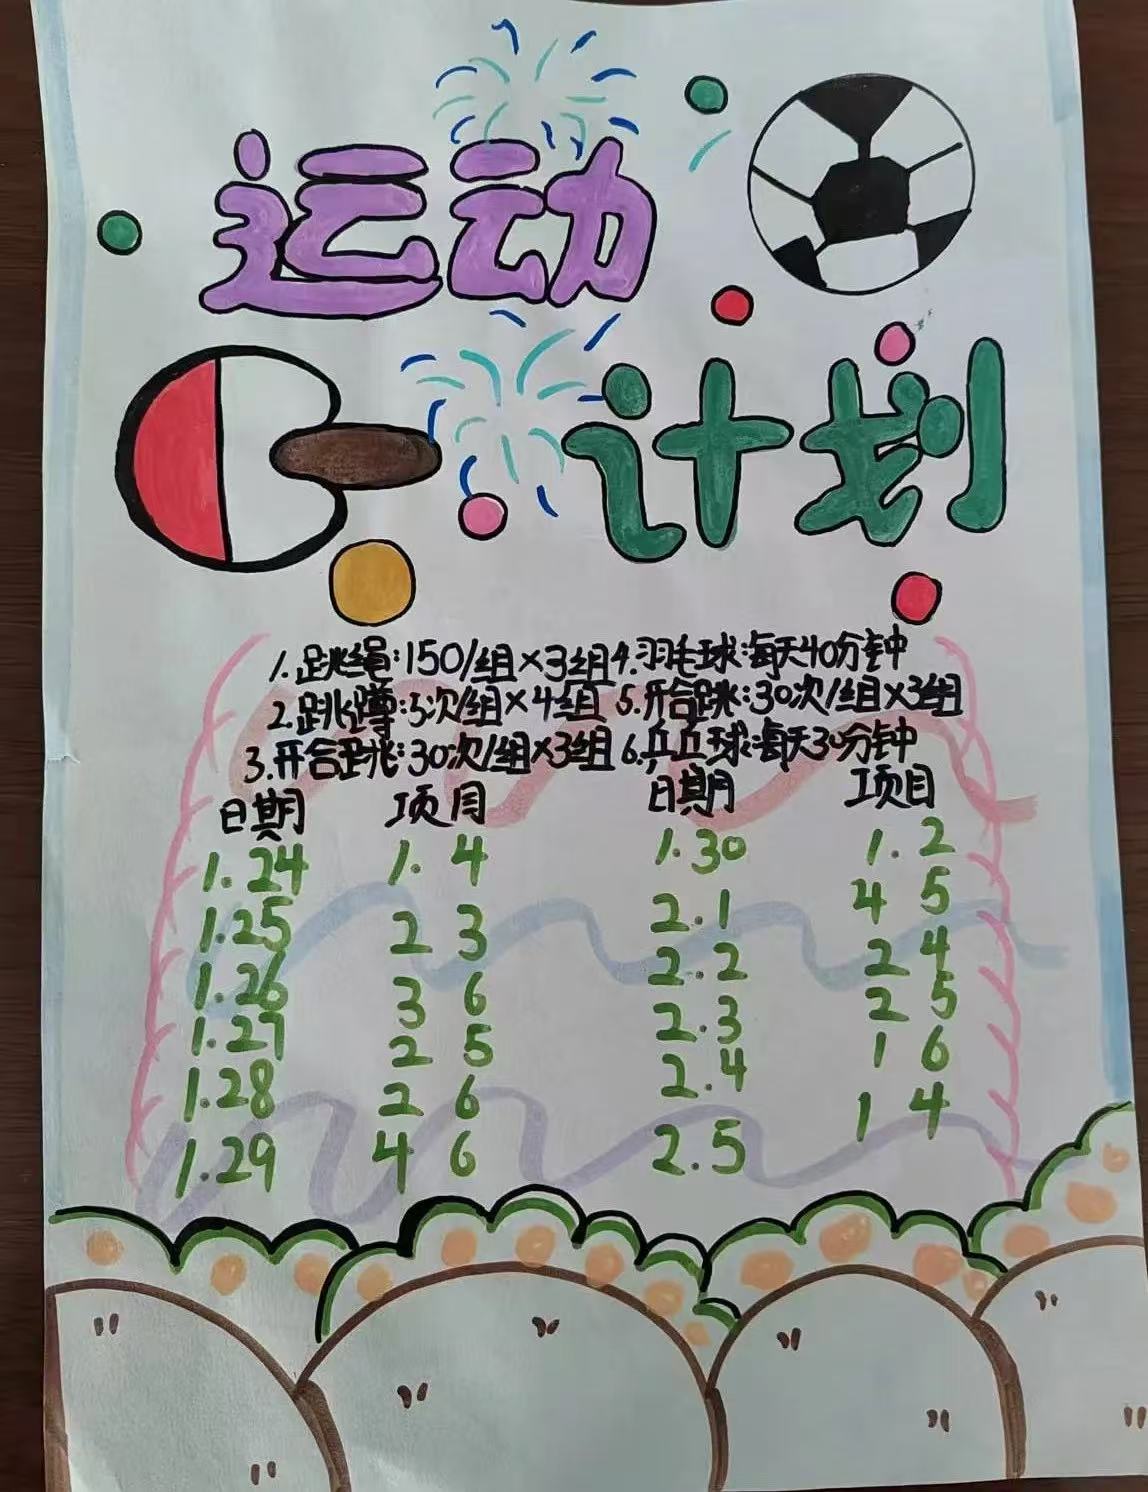 运动
计划
1.跳绳:150/组×3组 4.羽毛球:每天40分钟
2.跳蹲:5次/组×4组 5.开合跳:30次/组×3组
3.开合跳:30次/组×3组 6.乒乓球:每天30分钟
日期 项目 日期 项目
1.24 1. 4 1.30 1. 2
1.25 2 3 2.1 4 5
1.26 3 6 2.2 2 4
1.27 2 5 2.3 2 5
1.28 2 6 2.4 1 6
1.29 4 6 2.5 1 4